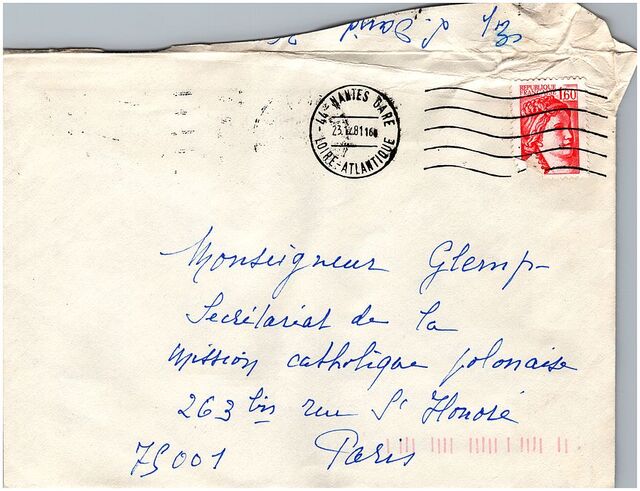 44 NANTES GARE
LOIRE-ATLANTIQUE
REPUBLIQUE
FRANCAISE
1,60
Monseigneur Glemp
Secrétariat de la
mission catholique polonaise
263 bis rue St Honoré
75001 Paris